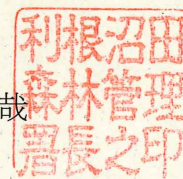 利根沼田
森林管理
署長之印
哉